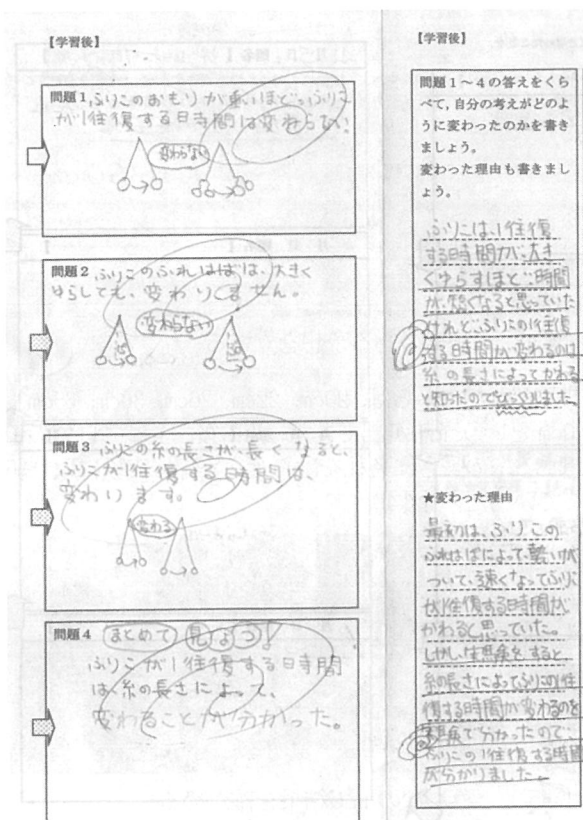 【学習後】
問題1 ふりこのおもりが重いほど、ふりこ
が1往復する時間は変わらない
変わらない
問題2 ふりこのふれはばは、大きく
ゆらしても、変わりません。
変わらない
問題3 ふりこの糸の長さが、長くなると、
ふりこが1往復する時間は、
変わります。
変わる
問題4 まとめて見なつ!
ふりこが1往復する時間
は、糸の長さによって、
変わることが分かった。
【学習後】
問題1〜4の答えをくら
べて,自分の考えがどの
ように変わったのかを書き
ましょう。
変わった理由も書きまし
ょう。
ふりこは、1往復
する時間が、大き
くゆらすほど、時間
が、短くなると思っていた
けれど、ふりこの1往復
する時間が変わるのは
糸の長さによってかわる
と知ったのでびっくりしました。
★変わった理由
最初は、ふりこの
ふれはばによって、勢いが
ついて、速くなってふりこ
が1往復する時間が
かわると思っていた。
しかし、実験をすると
糸の長さによってふりこの1往
復する時間が変わるのを
実験で分かったので、
ふりこの1往復する時間
が分かりました。